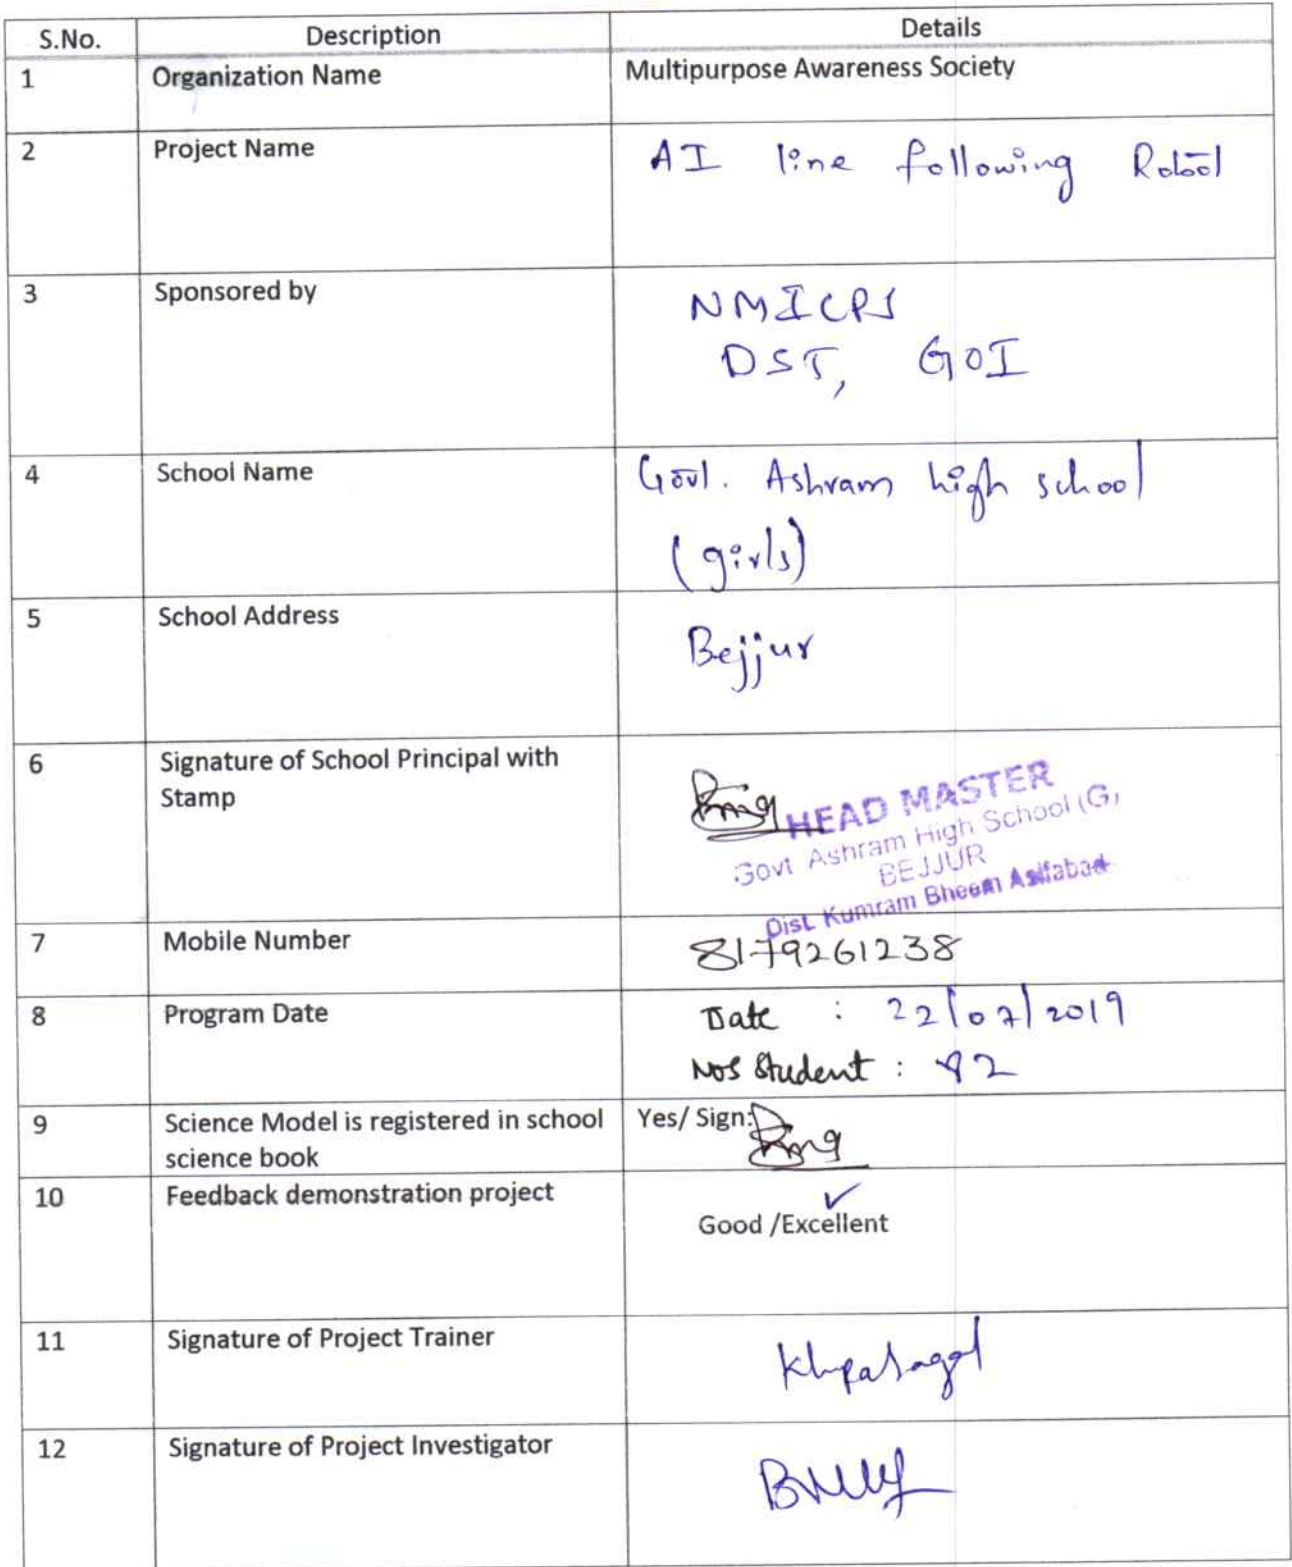 S.No. Description Details
1 Organization Name Multipurpose Awareness Society
2 Project Name AI line following Robot
3 Sponsored by NMICPS
DST, GOI
4 School Name Govt. Ashram high school
(girls)
5 School Address Bejjur
6 Signature of School Principal with
Stamp
HEAD MASTER
Govt Ashram High School (G)
BEJJUR
Dist. Kumram Bheem Asifabad
7 Mobile Number 8179261238
8 Program Date Date : 22/07/2019
Nos Student : 92
9 Science Model is registered in school Yes/ Sign:
science book
10 Feedback demonstration project
Good /Excellent
11 Signature of Project Trainer
12 Signature of Project Investigator